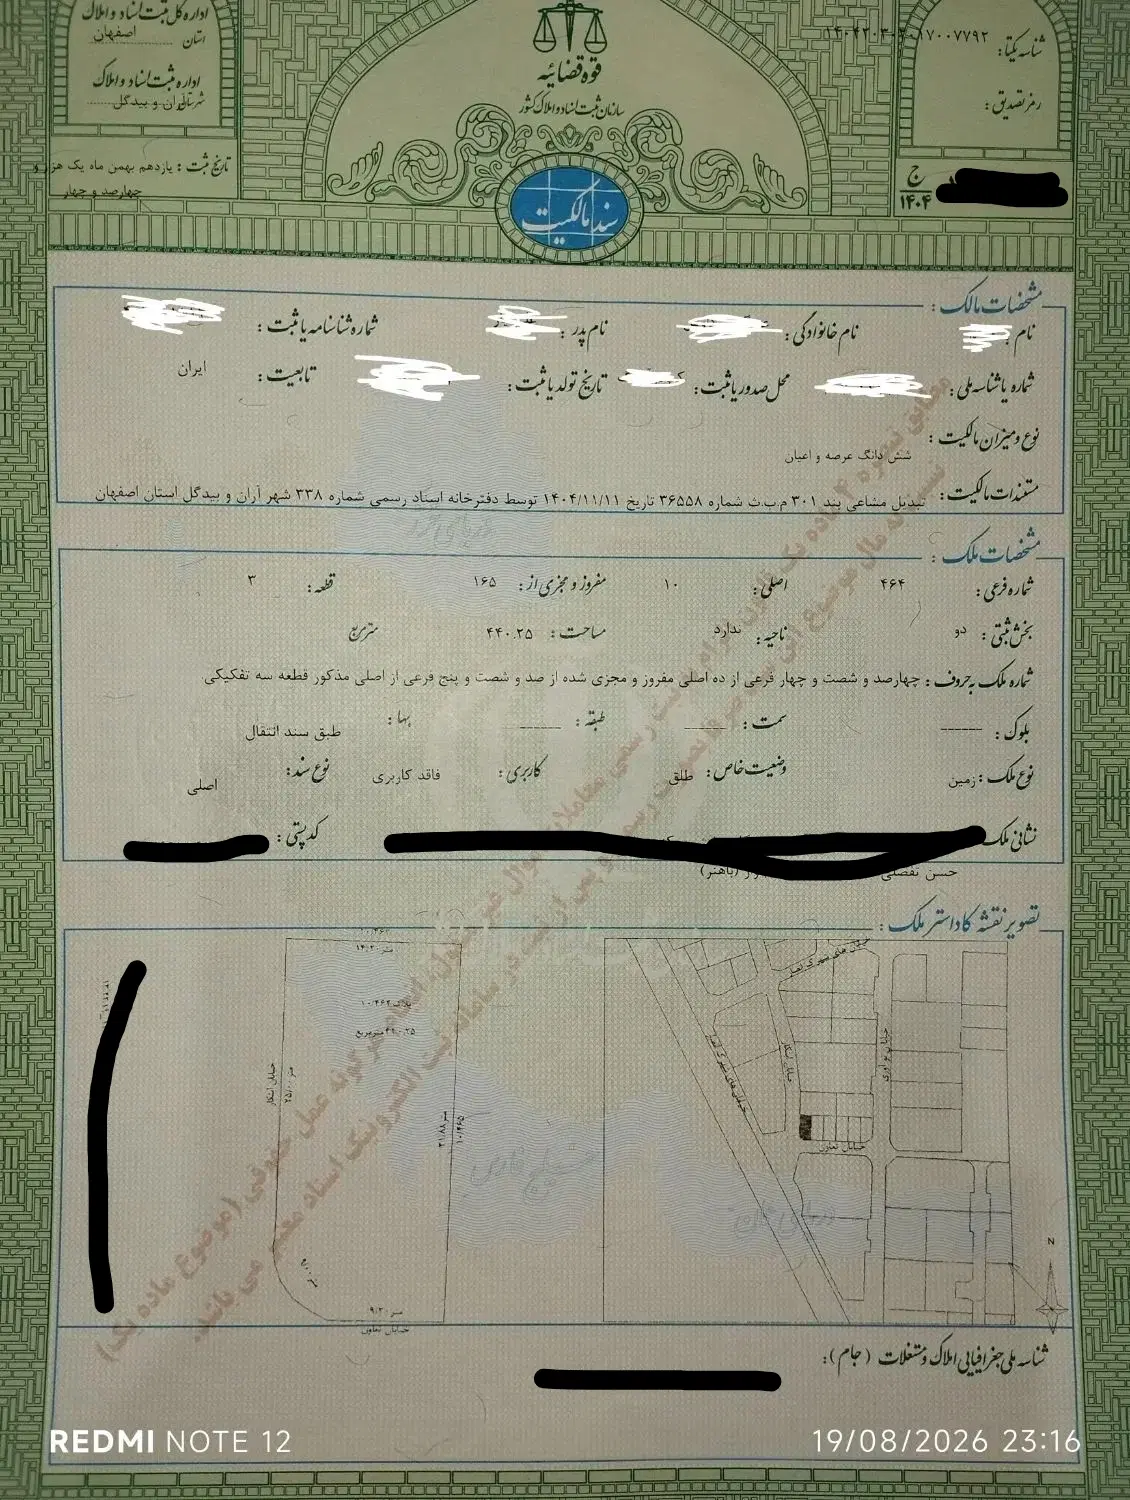 اداره کل ثبت اسناد و املاک
استان اصفهان
اداره ثبت اسناد و املاک
شهرستان آران و بیدگل
تاریخ ثبت : یازدهم بهمن ماه یک هزار و
چهارصد و چهار
قوه قضائیه
سازمان ثبت اسناد و املاک کشور
سند مالکیت
شناسه یکتا:
رمز تصدیق:
ج
۱۴۰۴
مشخصات مالک :
نام : نام خانوادگی : نام پدر : شماره شناسنامه یا ثبت :
شماره یا شناسه ملی : محل صدور یا ثبت : تاریخ تولد یا ثبت : تابعیت : ایران
نوع و میزان مالکیت :
شش دانگ عرصه و اعیان
مستندات مالکیت : تبدیل مشاعی بند ۳۰۱ م.ب.ث شماره ۳۶۵۵۸ تاریخ ۱۴۰۴/۱۱/۱۱ توسط دفترخانه اسناد رسمی شماره ۳۳۸ شهر آران و بیدگل استان اصفهان
دریای خزر
مشخصات ملک :
شماره فرعی : ۴۶۴ اصلی : ۱۰ مفروز و مجزی از : ۱۶۵ قطعه : ۳
بخش ثبتی : دو ناحیه : ندارد مساحت : ۴۴۰.۲۵ مترمربع
شماره ملک به حروف : چهارصد و شصت و چهار فرعی از ده اصلی مفروز و مجزی شده از صد و شصت و پنج فرعی از اصلی مذکور قطعه سه تفکیکی
بلوک : ------ سمت : ------ طبقه : ------ بها : طبق سند انتقال
نوع ملک : زمین وضعیت خاص : طلق کاربری : فاقد کاربری نوع سند : اصلی
نشانی ملک کدپستی :
حسن تفضلی (باهنر)
تصویر نقشه کاداستر ملک :
متر ۱۴/۲۰
پلاک ۱۰/۴۶۴
۴۴۰.۲۵ مترمربع
خیابان ابتکار
متر ۲۵/۰۰
متر ۳۱/۸۸
۱۰/۴۶۵
متر ۹/۲۰
خیابان تعاون
خیابان ابتکار
خیابان نوآوری
خیابان تعاون
خلیج فارس
دریای عمان
N
شناسه ملی جغرافیایی املاک و مستغلات (جام):
REDMI NOTE 12
19/08/2026 23:16